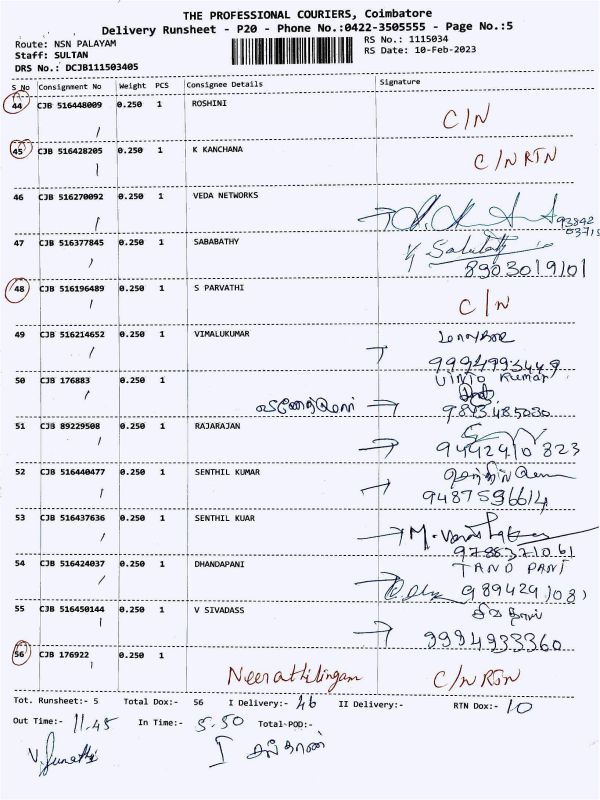 THE PROFESSIONAL COURIERS, Coimbatore
Delivery Runsheet - P20 - Phone No.:0422-3505555 - Page No.:5
Route: NSN PALAYAM
RS No.: 1115034
Staff: SULTAN
RS Date: 10-Feb-2023
DRS No.: DCJB111503405
S No Consignment No Weight PCS Consignee Details Signature
44 CJB 516448009 0.250 1 ROSHINI C/N
45 CJB 516428205 0.250 1 K KANCHANA C/N RTN
46 CJB 516270092 0.250 1 VEDA NETWORKS
47 CJB 516377845 0.250 1 SABABATHY
8903019101
48 CJB 516196489 0.250 1 S PARVATHI C/N
49 CJB 516214652 0.250 1 VIMALUKUMAR
9994993449
50 CJB 176883 0.250 1 Kumar
9843485030
51 CJB 89229508 1 0.250 1 RAJARAJAN
9442410823
52 CJB 516440477 0.250 1 SENTHIL KUMAR
9487596614
53 CJB 516437636 0.250 1 SENTHIL KUAR
9788371061
54 CJB 516424037 0.250 1 DHANDAPANI TAND PANI
55 CJB 516450144 0.250 1 V SIVADASS
9994933360
56 CJB 176922 0.250 1
Neerathilingam C/N RTN
Tot. Runsheet:- 5 Total Dox:- 56 I Delivery:- 46 II Delivery:- RTN Dox:- 10
Out Time:- 11.45 In Time:- 5.50 Total-POD:-
I சுல்தான்